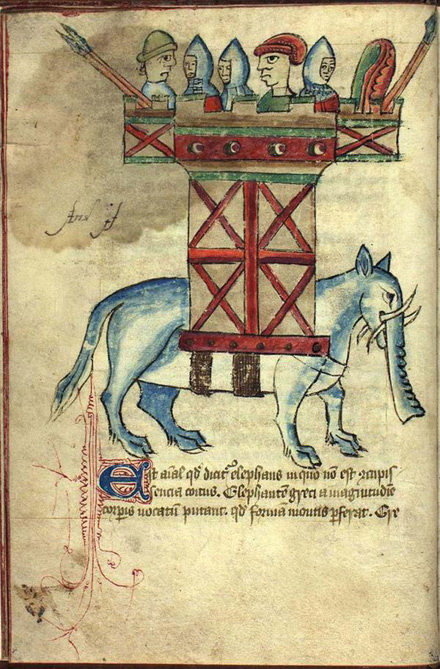 Est aĩal qd dicitᷣ elephans in quo nõ est ꝯcupis
sencia coitus. Elephantẽ greci a magnitudĩe
corpis uocatũ putant. qd forma montis pferat. Gre